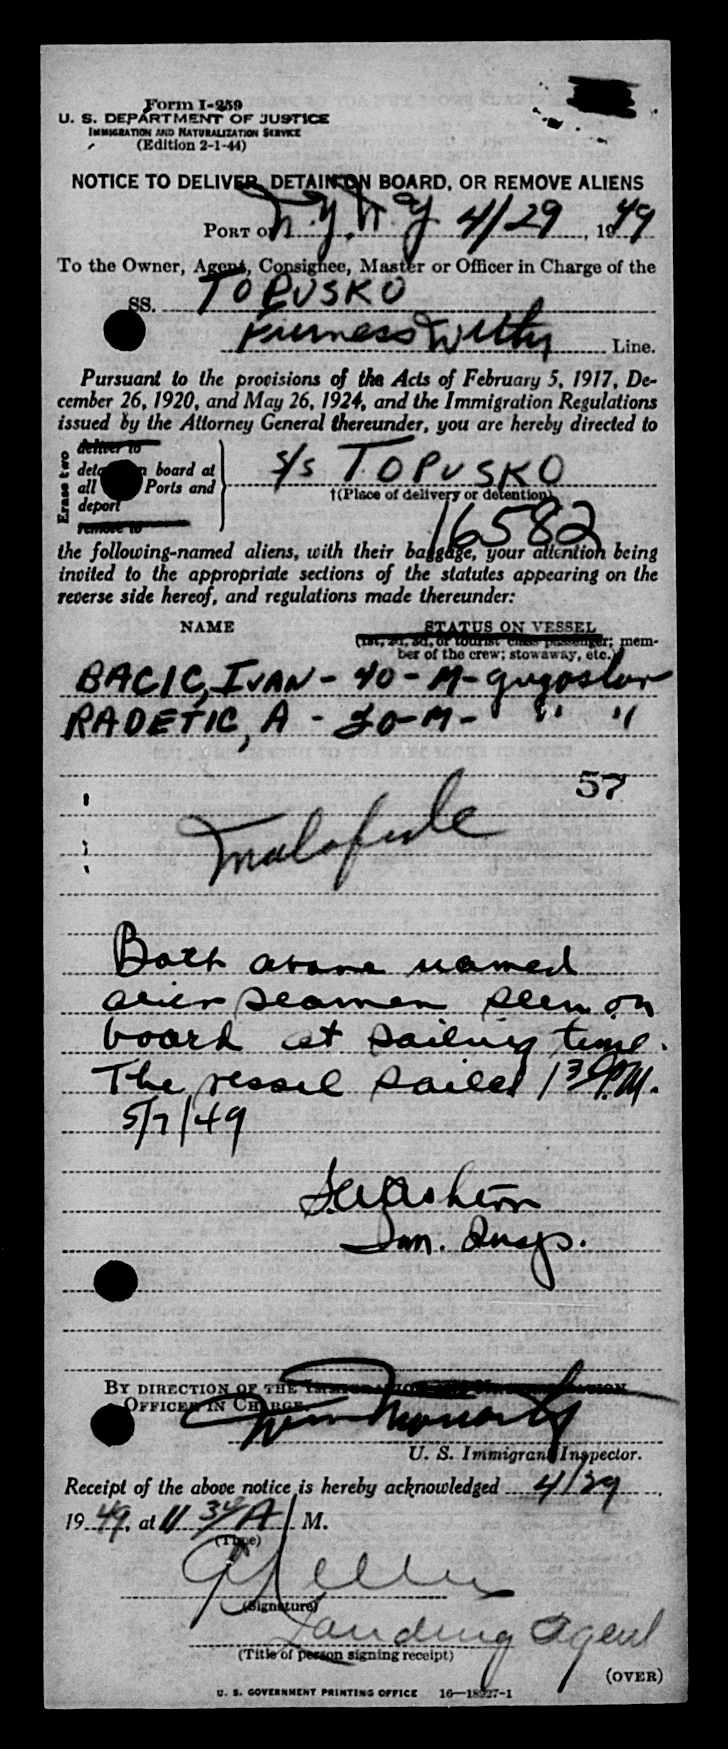 Form I-259
U. S. DEPARTMENT OF JUSTICE
IMMIGRATION AND NATURALIZATION SERVICE
(Edition 2-1-44)
NOTICE TO DELIVER, DETAIN ON BOARD, OR REMOVE ALIENS
PORT OF N.Y. N.Y. 4/29, 1949
To the Owner, Agent, Consignee, Master or Officer in Charge of the
SS. TOPUSKO
Furness Withy Line.
Pursuant to the provisions of the Acts of February 5, 1917, De-
cember 26, 1920, and May 26, 1924, and the Immigration Regulations
issued by the Attorney General thereunder, you are hereby directed to
Erase two
deliver to
detain on board at
all Ports and
deport
remove to
S/S TOPUSKO
†(Place of delivery or detention)
16582
the following-named aliens, with their baggage, your attention being
invited to the appropriate sections of the statutes appearing on the
reverse side hereof, and regulations made thereunder:
NAME STATUS ON VESSEL
(1st, 2d, 3d, or tourist class passenger; mem-
ber of the crew; stowaway, etc.)
BACIC, IVAN - 40 - M - Yugoslav
RADETIC, A - 30 - M - " "
57
Malafide
Both above named
alien seamen seen on
board at sailing time.
The vessel sailed 1 35 P.M.
5/7/49
Imm. Insp.
BY DIRECTION OF THE IMMIGRATION AND NATURALIZATION
OFFICER IN CHARGE.
U. S. Immigrant Inspector.
Receipt of the above notice is hereby acknowledged 4/29,
1949, at 11 34 A M.
(Time)
(Signature)
Landing Agent
(Title of person signing receipt)
(OVER)
U. S. GOVERNMENT PRINTING OFFICE 16—18927-1